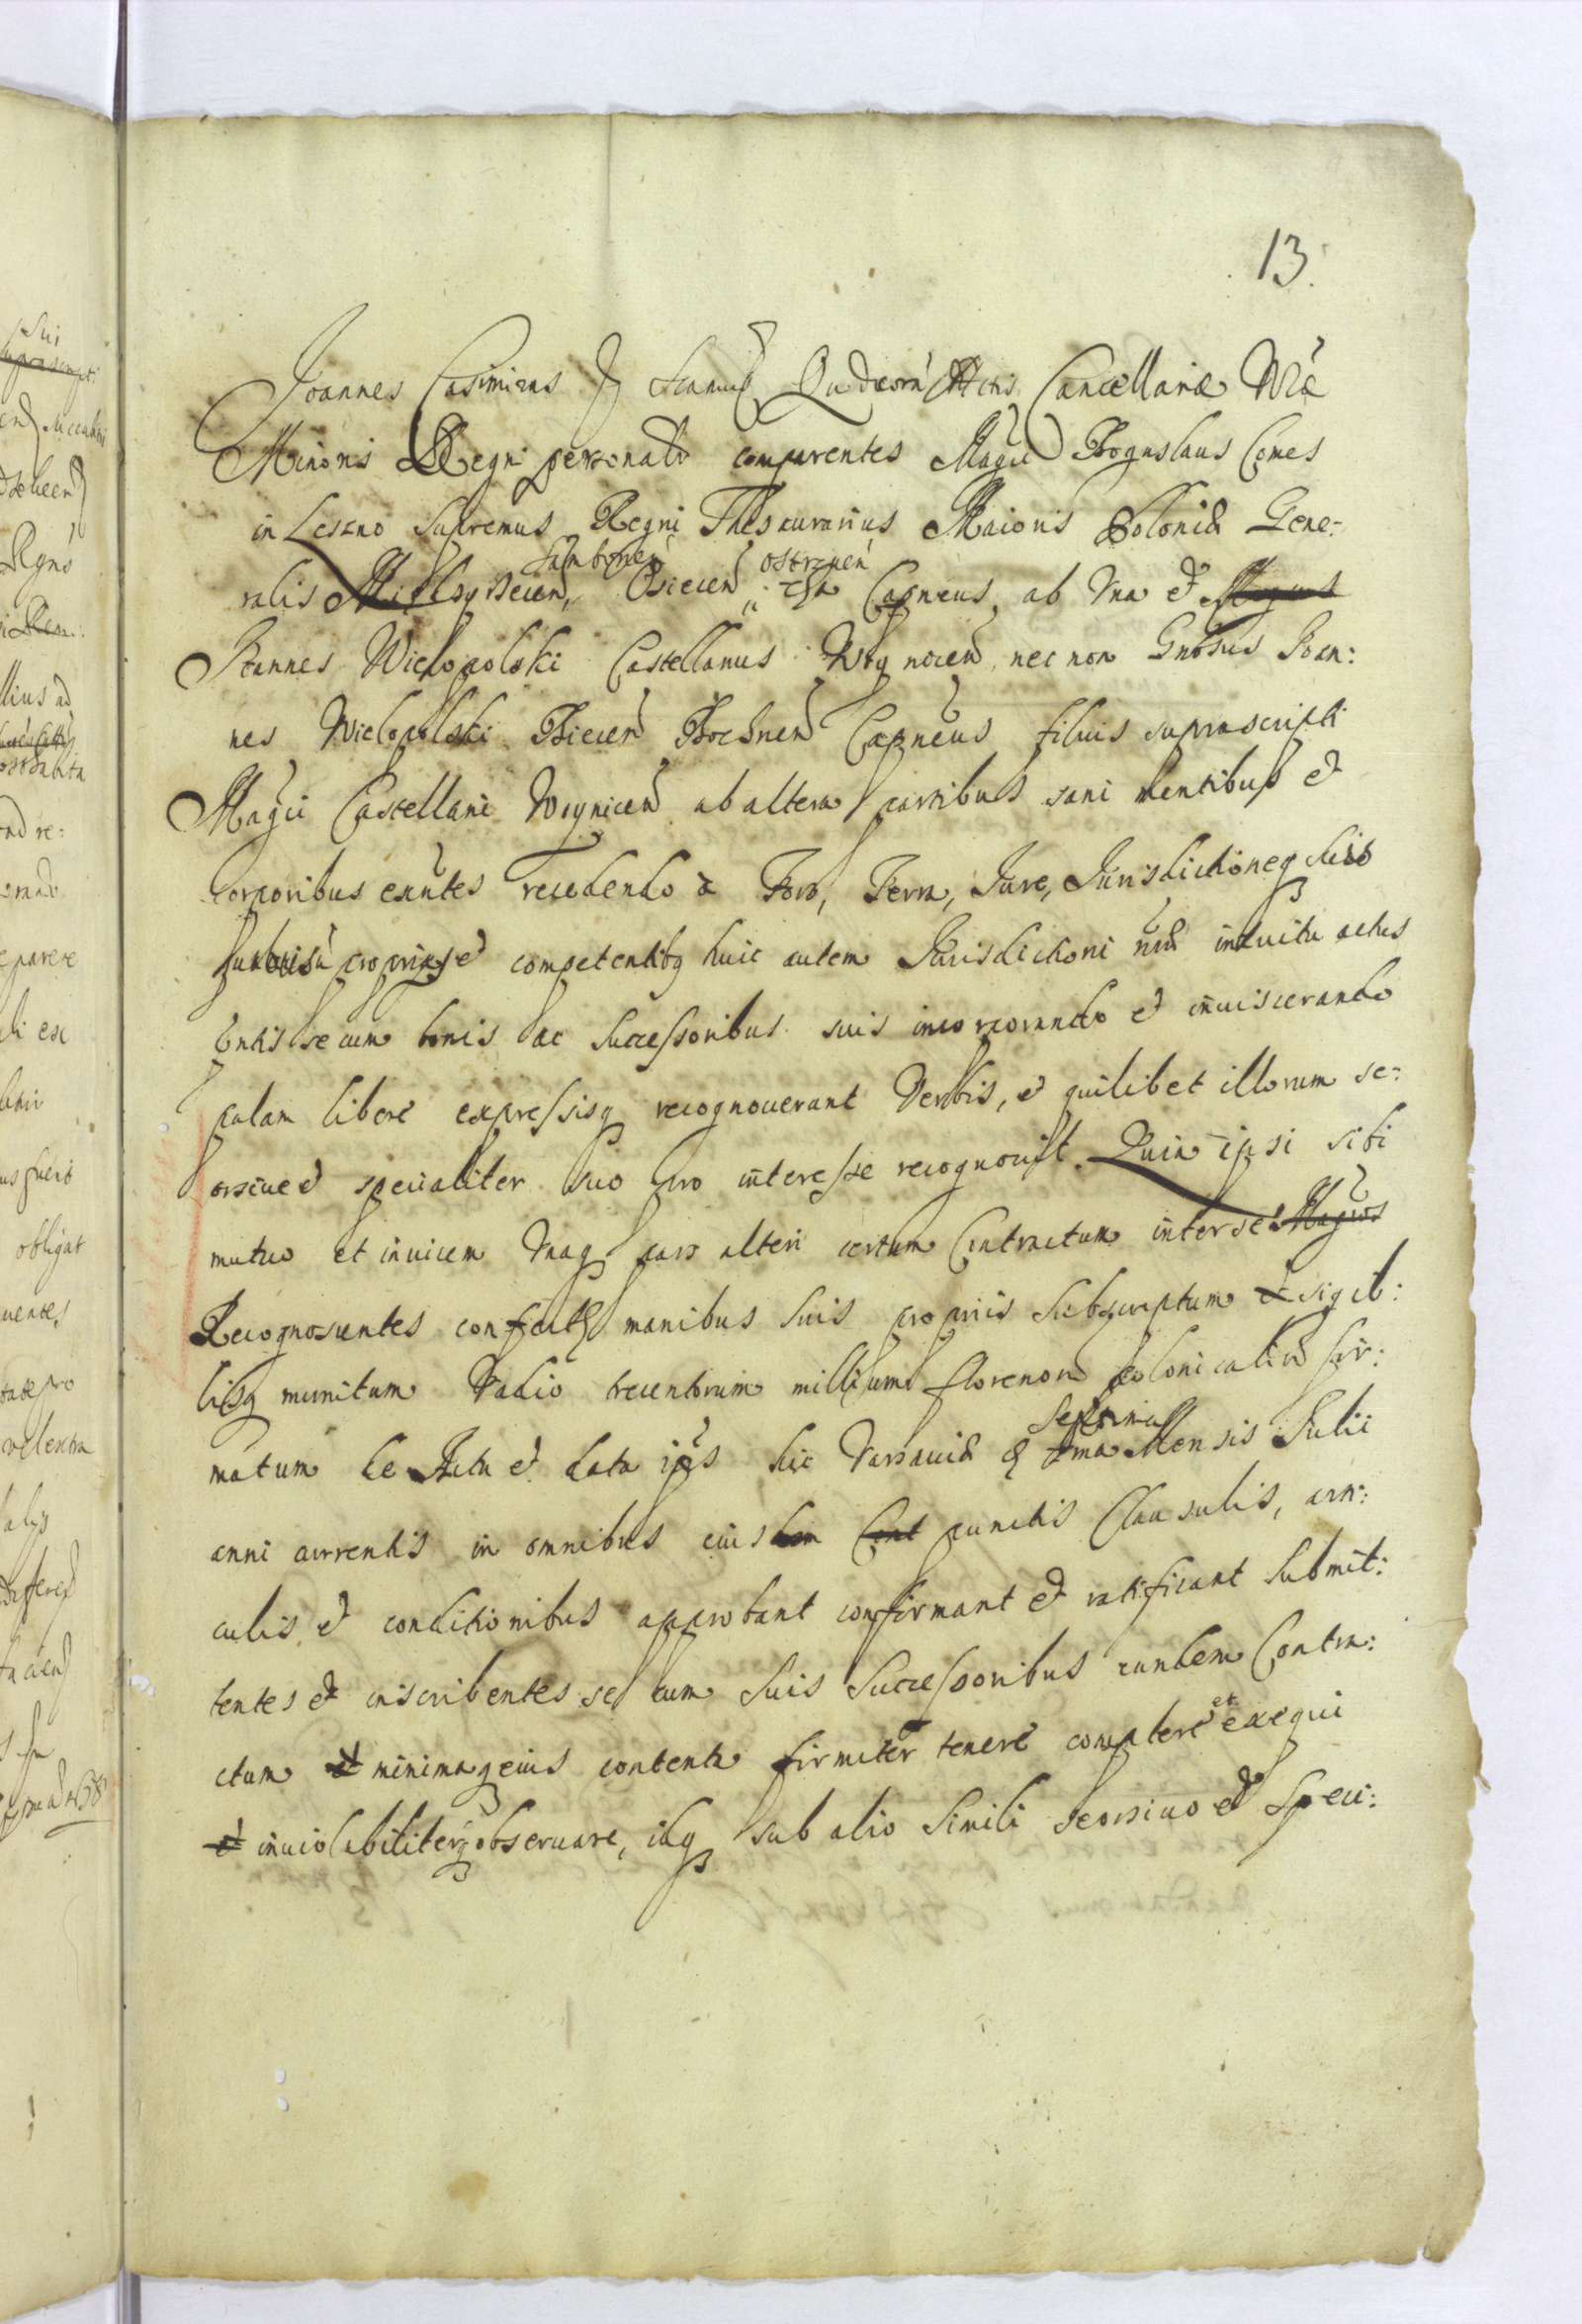 13.
Joannes Casimirus Quia coram Actis Cancellariæ Nræ
Minoris Regni personalr comparentes Magci Boguslaus Comes
in Leszno Supremus Regni Thesaurarius Maioris Poloniæ Gene-
Samborien Ostrzuen
ralis Miedsyrzecen, Osiecen Capneus, ab Una et Magcus
Joannes Wielopolski Castellanus Woynicen nec non Gnosus Joan:
nes Wielopolski Biecen Bochnen Capneus filius suprascripti
Magci Castellani Woynicen ab altera partibus sani mentibus et
corporibus exntes recedendo a Foro, Terra, Jure, Jurisdictioneq suis
propriis et competentibq huic autem Jurisdictioni nræ intuitu actus
pntis se cum bonis ac successoribus suis incorporando et inuiscerando
palam libere expressisq recognouerunt Verbis, et quilibet illorum se-
orsiue et specialiter suo pro interesse recognouit. Quia ipsi sibi
mutuo et inuicem Unaq pars alteri certum Contractum inter se Magcos
Recognoscentes confectum manibus suis propriis subscriptum et sigil:
lisq munitum Vadio trecentorum millium florenor polonicaliu fir:
Septima
matum de Actu et data ipsius hic Varsauiæ 7ma Mensis Julii
anni currentis in omnibus eiusdem Cont punctis Clausulis, arti:
culis et conditionibus approbant confirmant et ratificant submit:
tentes et inscribentes se cum suis successoribus eundem Contra:
et
ctum et minimaq eius contenta firmiter tenere complere exequi
et inuiolabiliterq obseruare, idq sub alio simili seorsiuo et speci: